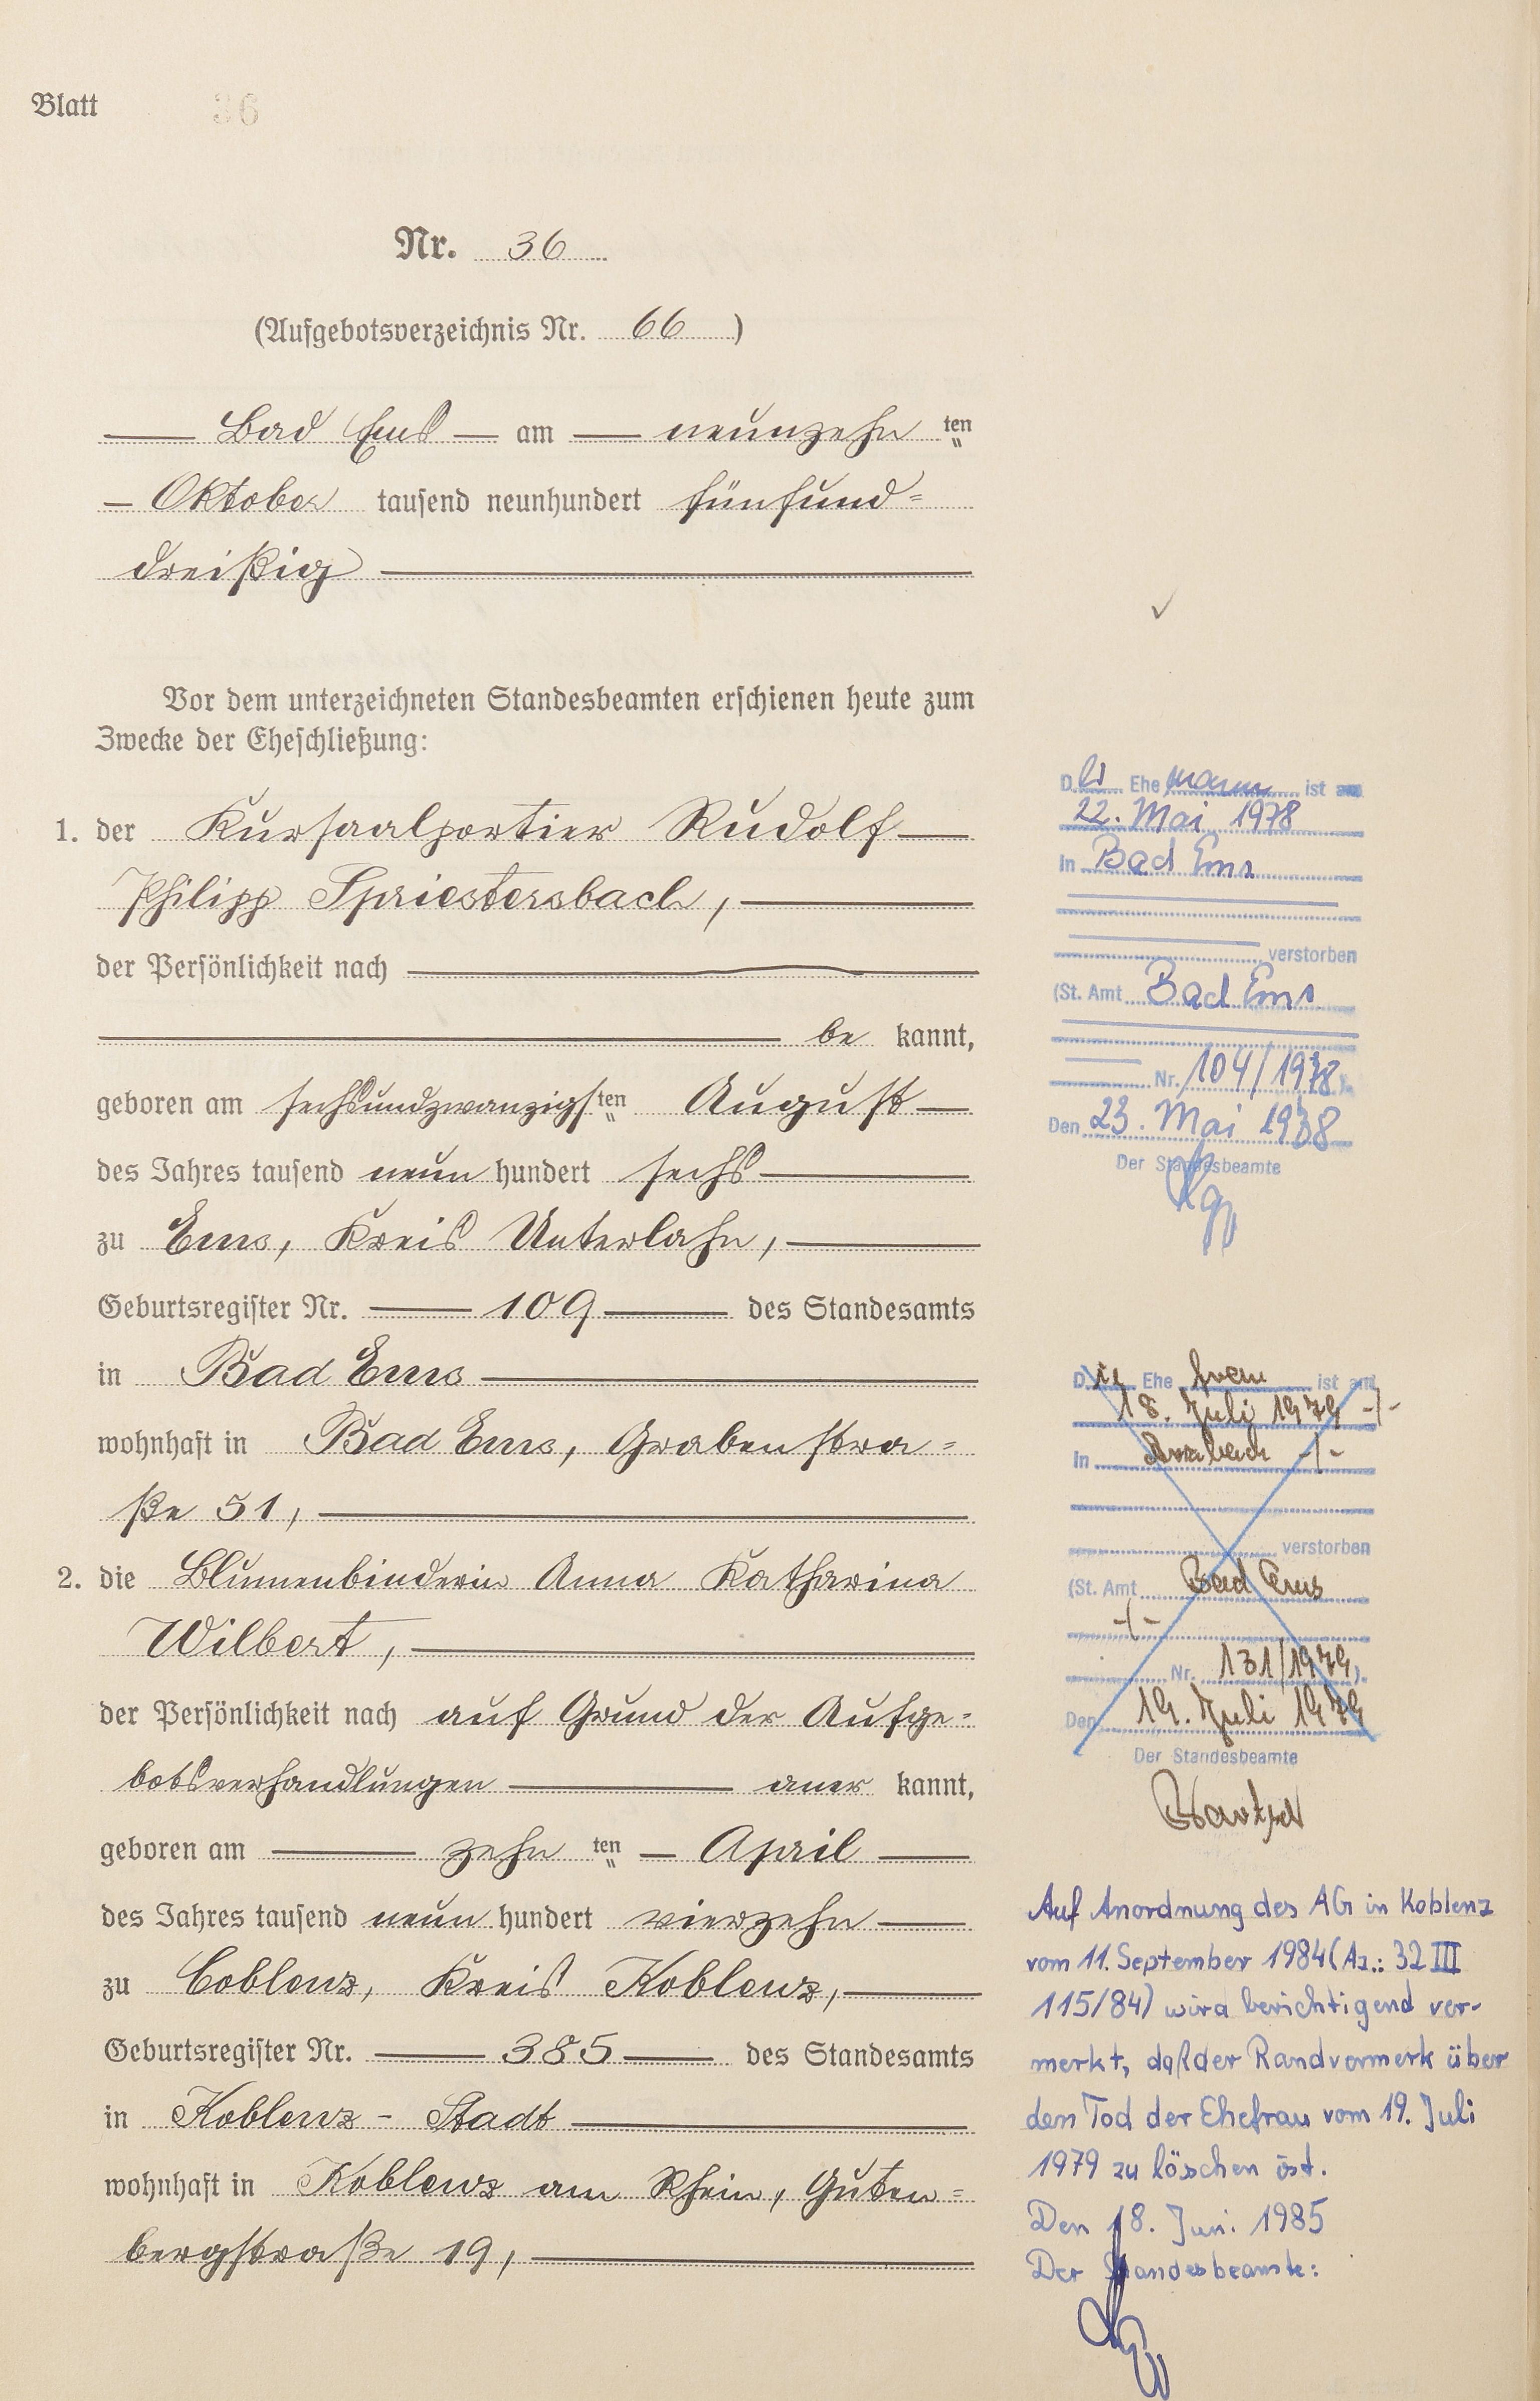 Blatt 36
Nr. 36
(Aufgebotsverzeichnis Nr. 66)
Bad Ems am neunzehn ten
Oktober tausend neunhundert fünfund=
dreißig
Vor dem unterzeichneten Standesbeamten erschienen heute zum
Zwecke der Eheschließung:
1. der Kursaalportier Rudolf
Philipp Spriestersbach,
der Persönlichkeit nach
be kannt,
geboren am sechsundzwanzigsten August
des Jahres tausend neun hundert sechs
zu Ems, Kreis Unterlahn,
Geburtsregister Nr. 109 des Standesamts
in Bad Ems
wohnhaft in Bad Ems, Grabenstra=
ße 51,
2. die Blumenbinderin Anna Katharina
Wilbert,
der Persönlichkeit nach auf Grund der Aufge=
botsverhandlungen aner kannt,
geboren am zehn ten April
des Jahres tausend neun hundert vierzehn
zu Coblenz, Kreis Koblenz,
Geburtsregister Nr. 385 des Standesamts
in Koblenz - Stadt
wohnhaft in Koblenz am Rhein, Guten=
bergstraße 19,
Der Ehemann ist am
22. Mai 1978
in Bad Ems
verstorben
(St. Amt Bad Ems
Nr. 104/1978).
Den 23. Mai 1978
Der Standesbeamte
Die Ehefrau ist am
18. Juli 1979 -/-
in Arzbach -/-
verstorben
(St. Amt Bad Ems
-/-
Nr. 131/1979).
Den 19. Juli 1979
Der Standesbeamte
Auf Anordnung des AG in Koblenz
vom 11. September 1984 (Az.: 32 III
115/84) wird berichtigend ver-
merkt, daß der Randvermerk über
den Tod der Ehefrau vom 19. Juli
1979 zu löschen ist.
Den 18. Juni 1985
Der Standesbeamte: